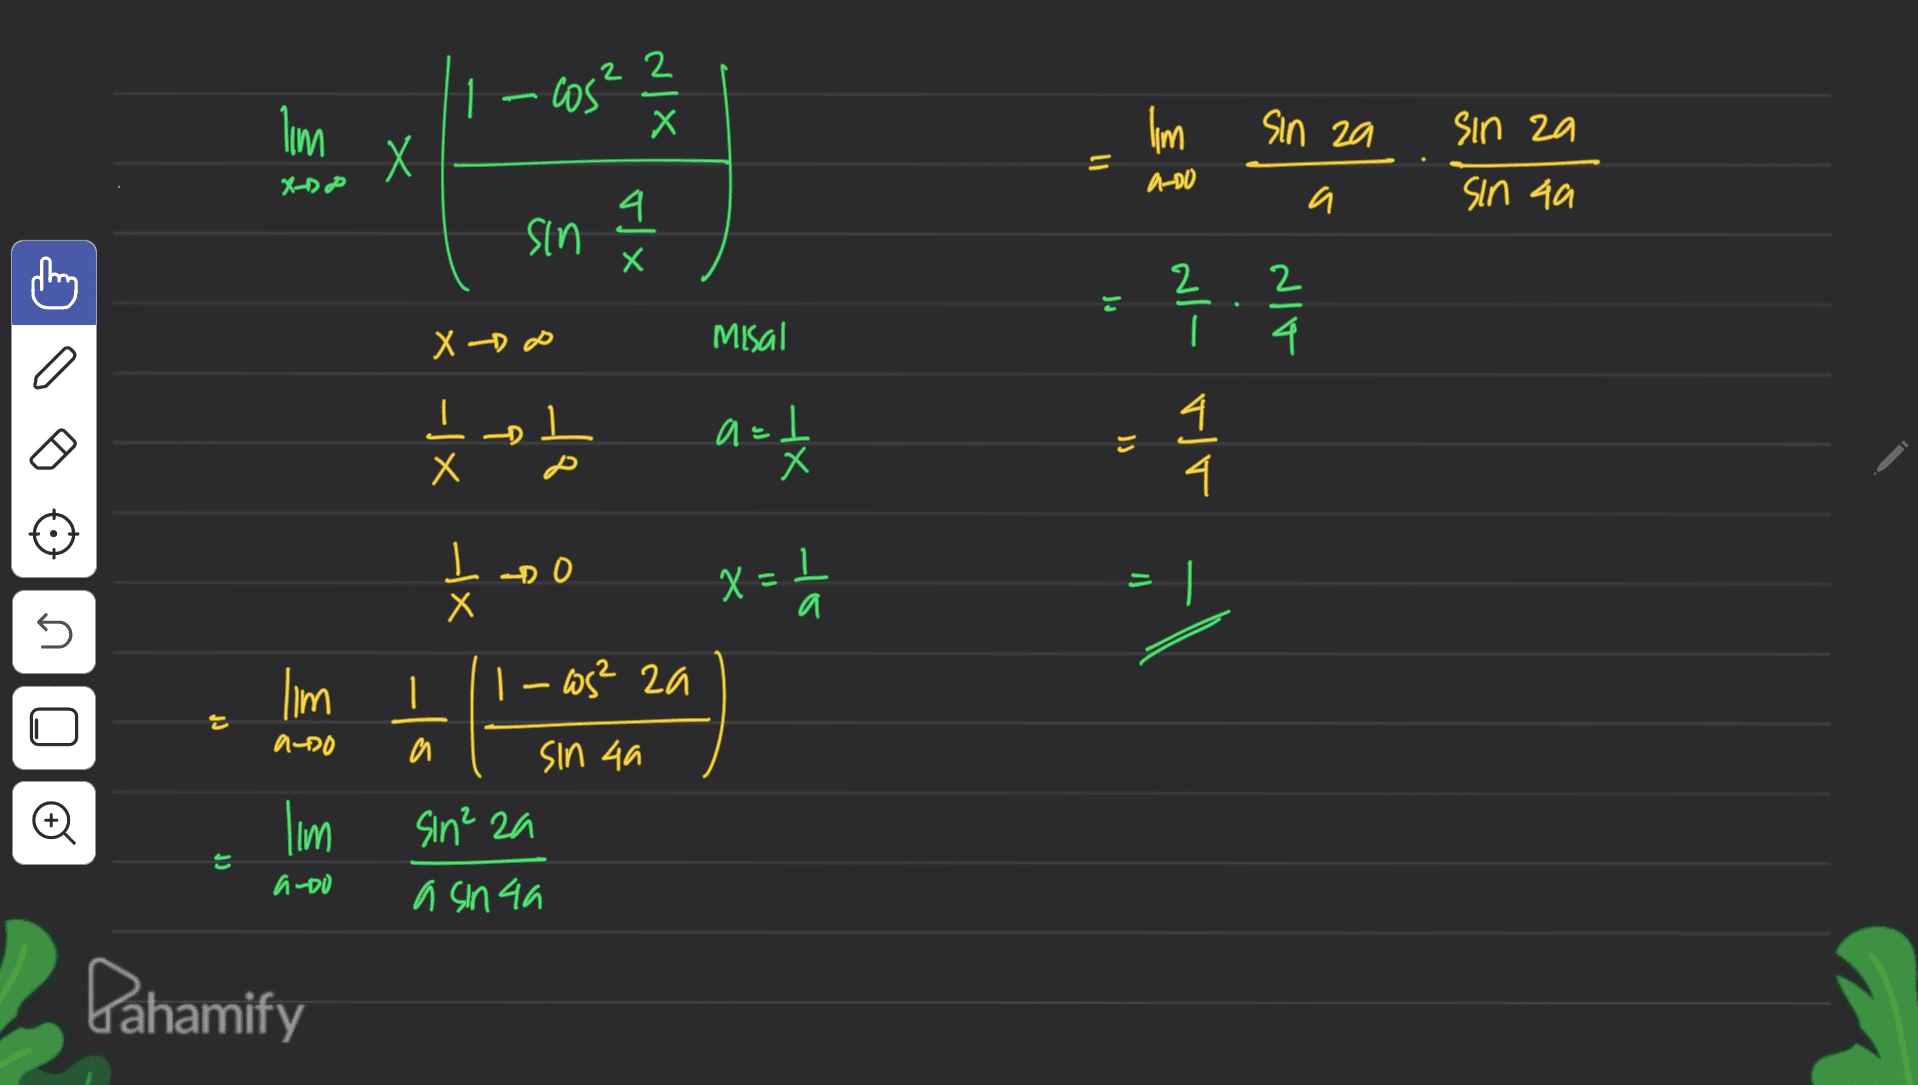 lim x→∞ x ( (1 - cos² 2/x) / (sin 4/x) )
x → ∞ Misal
1/x → 1/∞ a = 1/x
1/x → 0 x = 1/a
= lim a→0 1/a ( (1 - cos² 2a) / (sin 4a) )
= lim a→0 (sin² 2a) / (a sin 4a)
= lim a→0 (sin 2a) / a · (sin 2a) / (sin 4a)
= 2/1 · 2/4
= 4/4
= 1
Pahamify